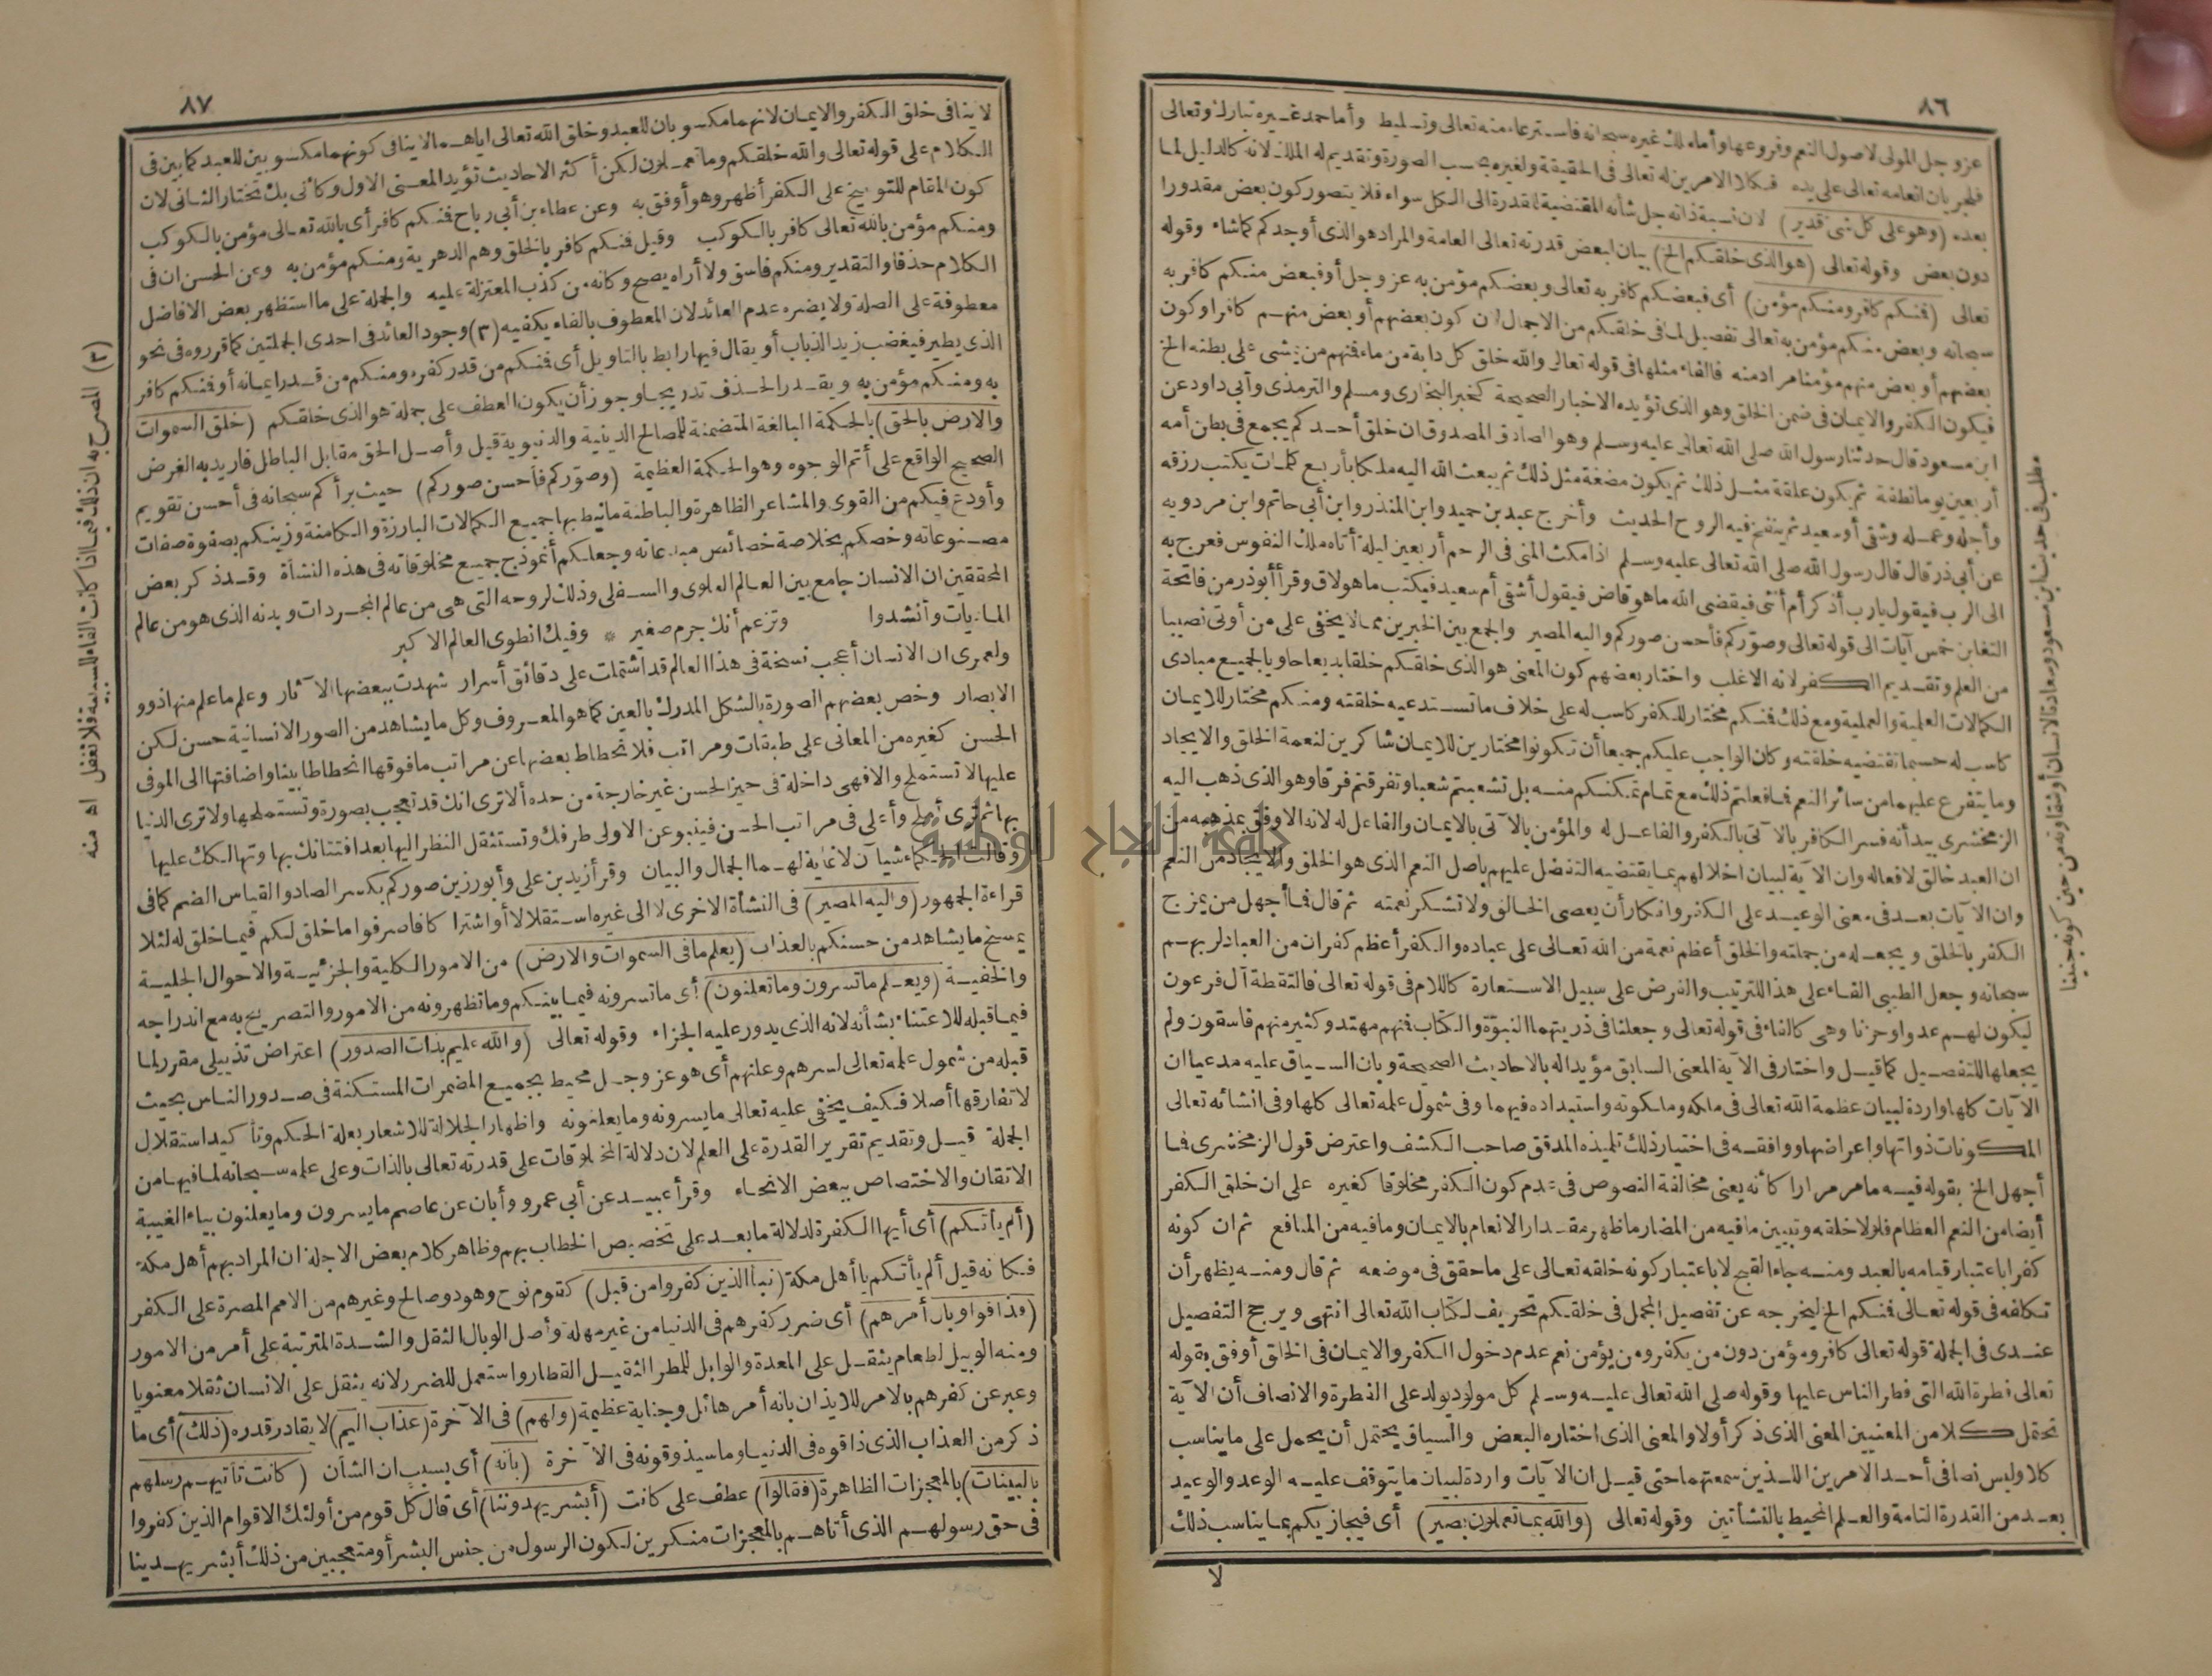 ٨٦
عز وجل المولى لاصول النعم وفروعها وأما ملك غيره سبحانه فاسترعاء منه تعالى وتسليط وأما حمد غيره تبارك وتعالى
فلجريان انعامه تعالى على يده فكلا الامرين له تعالى فى الحقيقة ولغيره بحسب الصورة وتقديم له الملك لانه كالدليل لما
بعده (وهو على كل شئ قدير) لان نسبة ذاته جل شأنه المقتضية للقدرة الى الكل سواء فلا يتصور كون بعض مقدورا
دون بعض وقوله تعالى (هو الذى خلقكم الخ) بيان لبعض قدرته تعالى العامة والمراد هو الذى أوجدكم كما شاء وقوله
تعالى (فمنكم كافر ومنكم مؤمن) أى فبعضكم كافر به تعالى وبعضكم مؤمن به عز وجل أو فبعض منكم كافر به
سبحانه وبعض منكم مؤمن به تعالى تفصيل لما فى خلقكم من الاجمال لان كون بعضهم أو بعض منهم كافرا وكون
بعضهم أو بعض منهم مؤمنا مراد منه فالفاء مثلها فى قوله تعالى والله خلق كل دابة من ماء فمنهم من يمشى على بطنه الخ
فيكون الكفر والايمان فى ضمن الخلق وهو الذى تؤيده الاخبار الصحيحة كخبر البخارى ومسلم والترمذى وأبى داود عن
ابن مسعود قال حدثنا رسول الله صلى الله تعالى عليه وسلم وهو الصادق المصدوق ان خلق أحدكم يجمع فى بطن أمه
أربعين يوما نطفة ثم يكون علقة مثل ذلك ثم يكون مضغة مثل ذلك ثم يبعث الله اليه ملكا بأربع كلمات يكتب رزقه
وأجله وعمله وشقى أو سعيد ثم ينفخ فيه الروح الحديث وأخرج عبد بن حميد وابن المنذر وابن أبى حاتم وابن مردويه
عن أبى ذر قال قال رسول الله صلى الله تعالى عليه وسلم اذا مكث المنى فى الرحم أربعين ليلة أتاه ملك النفوس فعرج به
الى الرب فيقول يارب أذكر أم أنثى فيقضى الله ما هو قاض فيقول أشقى أم سعيد فيكتب ما هو لاق وقرأ أبو ذر من فاتحة
التغابن خمس آيات الى قوله تعالى وصوركم فأحسن صوركم واليه المصير والجمع بين الخبرين مما لا يخفى على من أوتى نصيبا
من العلم وتقديم الكفر لانه الاغلب واختار بعضهم كون المعنى هو الذى خلقكم خلقا بديعا حاويا لجميع مبادى
الكمالات العلمية والعملية ومع ذلك فمنكم مختار للكفر كاسب له على خلاف ما تستدعيه خلقته ومنكم مختار للايمان
كاسب له حسبما تقتضيه خلقته وكان الواجب عليكم جميعا أن تكونوا مختارين للايمان شاكرين لنعمة الخلق والايجاد
وما يتفرع عليهما من سائر النعم فما فعلتم ذلك مع تمام تمكنكم منه بل تشعبتم شعبا وتفرقتم فرقا وهو الذى ذهب اليه
الزمخشرى بيد أنه فسر الكافر بالآتى بالكفر والفاعل له والمؤمن بالآتى بالايمان والفاعل له لانه الاوفق بمذهبه من
ان العبد خالق لافعاله وان الآية لبيان اخلالهم بما يقتضيه التفضل عليهم باصل النعم الذى هو الخلق والايجاد من النعم
وان الآيات بعد فى معنى الوعيد على الكفر وانكار أن يعصى الخالق ولا تشكر نعمته ثم قال فما أجهل من يمزج
الكفر بالخلق ويجعله من جملته والخلق أعظم نعمة من الله تعالى على عباده والكفر أعظم كفران من العباد لربهم
سبحانه وجعل الطيبى الفاء على هذا للترتيب والفرض على سبيل الاستعارة كاللام فى قوله تعالى فالتقطه آل فرعون
ليكون لهم عدوا وحزنا وهى كالفاء فى قوله تعالى وجعلنا فى ذريتهما النبوة والكتاب فمنهم مهتد وكثير منهم فاسقون ولم
يجعلها للتفصيل كما قيل واختار فى الآية المعنى السابق مؤيدا له بالاحاديث الصحيحة وبان السياق عليه مدعيا ان
الآيات كلها واردة لبيان عظمة الله تعالى فى ملكه وملكوته واستبداده فيهما وفى شمول علمه تعالى كلها وفى انشائه تعالى
المكونات ذواتها واعراضها ووافقه فى اختيار ذلك تلميذه المدقق صاحب الكشف واعترض قول الزمخشرى فما
أجهل الخ بقوله فيه ما مر مرارا كأنه يعنى مخالفة النصوص فى عدم كون الكفر مخلوقا كغيره على ان خلق الكفر
أيضا من النعم العظام فلولا خلقه وتبيين ما فيه من المضار ما ظهر مقدار الانعام بالايمان وما فيه من المنافع ثم ان كونه
كفرا باعتبار قيامه بالعبد ومنه جاء القبح لا باعتبار كونه خلقه تعالى على ما حقق فى موضعه ثم قال ومنه يظهر أن
تكلفه فى قوله تعالى فمنكم الخ ليخرجه عن تفصيل المجمل فى خلقكم تحريف لكتاب الله تعالى انتهى ويرجح التفصيل
عندى فى الجملة قوله تعالى كافر ومؤمن دون من يكفر ومن يؤمن نعم عدم دخول الكفر والايمان فى الخلق أوفق بقوله
تعالى فطرة الله التى فطر الناس عليها وقوله صلى الله تعالى عليه وسلم كل مولود يولد على الفطرة والانصاف أن الآية
تحتمل كلا من المعنيين المعنى الذى ذكر أولا والمعنى الذى اختاره البعض والسياق يحتمل أن يحمل على ما يناسب
كلا وليس نصا فى أحد الامرين اللذين سمعتهما حتى قيل ان الآيات واردة لبيان ما يتوقف عليه الوعد والوعيد
بعد من القدرة التامة والعلم المحيط بالنشأتين وقوله تعالى (والله بما تعملون بصير) أى فيجازيكم بما يناسب ذلك
لا
مطلب فى حديث ابن مسعود وسعادة الانسان أو شقاوته من حين كونه جنينا
٨٧
لا ينافى خلق الكفر والايمان لانهما مكسوبان للعبد وخلق الله تعالى اياهما لا ينافى كونهما مكسوبين للعبد كما بين فى
الكلام على قوله تعالى والله خلقكم وما تعملون لكن أكثر الاحاديث تؤيد المعنى الاول وكأنى بك تختار الثانى لان
كون المقام للتوبيخ على الكفر أظهر وهو أوفق به وعن عطاء بن أبى رباح فمنكم كافر أى بالله تعالى مؤمن بالكوكب
ومنكم مؤمن بالله تعالى كافر بالكوكب وقيل فمنكم كافر بالخلق وهم الدهرية ومنكم مؤمن به وعن الحسن ان فى
الكلام حذفا والتقدير ومنكم فاسق ولا أراه يصح وكانه من كذب المعتزلة عليه والجملة على ما استظهر بعض الافاضل
معطوفة على الصلة ولا يضره عدم العائد لان المعطوف بالفاء يكفيه (٣) وجود العائد فى احدى الجملتين كما قرروه فى نحو
الذى يطير فيغضب زيد الذباب أو يقال فيها رابط بالتاويل أى فمنكم من قدر كفره ومنكم من قدر ايمانه أو فمنكم كافر
به ومنكم مؤمن به ويقدر الحذف تدريجا وجوز أن يكون العطف على جملة هو الذى خلقكم (خلق السموات
والارض بالحق) بالحكمة البالغة المتضمنة للمصالح الدينية والدنيوية قيل وأصل الحق مقابل الباطل فاريد به الغرض
الصحيح الواقع على أتم الوجوه وهو الحكمة العظيمة (وصوركم فأحسن صوركم) حيث برأكم سبحانه فى أحسن تقويم
وأودع فيكم من القوى والمشاعر الظاهرة والباطنة ما نيط بها جميع الكمالات البارزة والكامنة وزينكم بصفوة صفات
مصنوعاته وخصكم بخلاصة خصائص مبدعاته وجعلكم أنموذج جميع مخلوقاته فى هذه النشأة وقد ذكر بعض
المحققين ان الانسان جامع بين العالم العلوى والسفلى وذلك لروحه التى هى من عالم المجردات وبدنه الذى هو من عالم
الماديات وأنشدوا وتزعم أنك جرم صغير * وفيك انطوى العالم الاكبر
ولعمرى ان الانسان أعجب نسخة فى هذا العالم قد اشتملت على دقائق أسرار شهدت ببعضها الآثار وعلم ما علم منها ذوو
الابصار وخص بعضهم الصورة بالشكل المدرك بالعين كما هو المعروف وكل ما يشاهد من الصور الانسانية حسن لكن
الحسن كغيره من المعانى على طبقات ومراتب فلانحطاط بعضها عن مراتب ما فوقها انحطاطا بينا واضافتها الى الموفى
عليها لا تستملح والا فهى داخلة فى حيز الحسن غير خارجة من حده ألا ترى انك قد تعجب بصورة وتستملحها ولا ترى الدنيا
بها ثم ترى أملح وأعلى فى مراتب الحسن فينبو عن الاولى طرفك وتستثقل النظر اليها بعد افتتانك بها وتهالكك عليها
وقالت الحكماء شيآن لا غاية لهما الجمال والبيان وقرأ زيد بن على وأبو رزين صوركم بكسر الصاد والقياس الضم كما فى
قراءة الجمهور (واليه المصير) فى النشأة الاخرى لا الى غيره استقلالا أو اشتراكا فاصرفوا ما خلق لكم فيما خلق له لئلا
يمسخ ما يشاهد من حسنكم بالعذاب (يعلم ما فى السموات والارض) من الامور الكلية والجزئية والاحوال الجلية
والخفية (ويعلم ما تسرون وما تعلنون) أى ما تسرونه فيما بينكم وما تظهرونه من الامور والتصريح به مع اندراجه
فيما قبله للاعتناء بشأنه لانه الذى يدور عليه الجزاء وقوله تعالى (والله عليم بذات الصدور) اعتراض تذييلى مقرر لما
قبله من شمول علمه تعالى لسرهم وعلنهم أى هو عز وجل محيط بجميع المضمرات المستكنة فى صدور الناس بحيث
لا تفارقها أصلا فكيف يخفى عليه تعالى ما يسرونه وما يعلنونه واظهار الجلالة للاشعار بعلة الحكم وتأكيد استقلال
الجملة قيل وتقديم تقرير القدرة على العلم لان دلالة المخلوقات على قدرته تعالى بالذات وعلى علمه سبحانه لما فيها من
الاتقان والاختصاص ببعض الانحاء وقرأ عبيد عن أبى عمرو وأبان عن عاصم ما يسرون وما يعلنون بياء الغيبة
(ألم يأتكم) أى أيها الكفرة لدلالة ما بعد على تخصيص الخطاب بهم وظاهر كلام بعض الاجلة ان المراد بهم أهل مكة
فكانه قيل ألم يأتكم يا أهل مكة (نبأ الذين كفروا من قبل) كقوم نوح وهود وصالح وغيرهم من الامم المصرة على الكفر
(فذاقوا وبال أمرهم) أى ضرر كفرهم فى الدنيا من غير مهلة وأصل الوبال الثقل والشدة المترتبة على أمر من الامور
ومنه الوبيل لطعام يثقل على المعدة والوابل للمطر الثقيل القطار واستعمل للضرر لانه يثقل على الانسان ثقلا معنويا
وعبر عن كفرهم بالامر للايذان بانه أمر هائل وجناية عظيمة (ولهم) فى الآخرة (عذاب اليم) لا يقادر قدره (ذلك) أى ما
ذكر من العذاب الذى ذاقوه فى الدنيا وما سيذوقونه فى الآخرة (بأنه) أى بسبب ان الشأن (كانت تأتيهم رسلهم
بالبينات) بالمعجزات الظاهرة (فقالوا) عطف على كانت (أبشر يهدوننا) أى قال كل قوم من أولئك الاقوام الذين كفروا
فى حق رسولهم الذى أتاهم بالمعجزات منكرين لكون الرسول من جنس البشر أو متعجبين من ذلك أبشر يهدينا
(٣) المصرح به ان ذلك فيما اذا كانت الفاء للسببية فلا تغفل اه منه
جامعة النجاح الوطنية